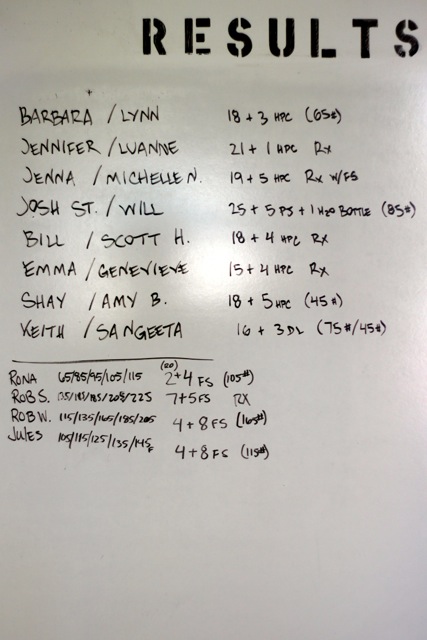 RESULTS
BARBARA / LYNN 18 + 3 HPC (65#)
JENNIFER / LUANNE 21 + 1 HPC RX
JENNA / MICHELLE N. 19 + 5 HPC RX W/FS
JOSH ST. / WILL 25 + 5 PS + 1 H2O BOTTLE (85#)
BILL / SCOTT H. 18 + 4 HPC RX
EMMA / GENEVIEVE 15 + 4 HPC RX
SHAY / AMY B. 18 + 5 HPC (45#)
KEITH / SANGEETA 16 + 3 DL (75#/45#)
(20)
RONA 65/85/95/105/115 2+4 FS (105#)
ROB S. /185/205/225 7+5 FS RX
ROB W. 115/135/165/185/205 4+8 FS (165#)
JULES 105/115/125/135/145F 4+8 FS (115#)